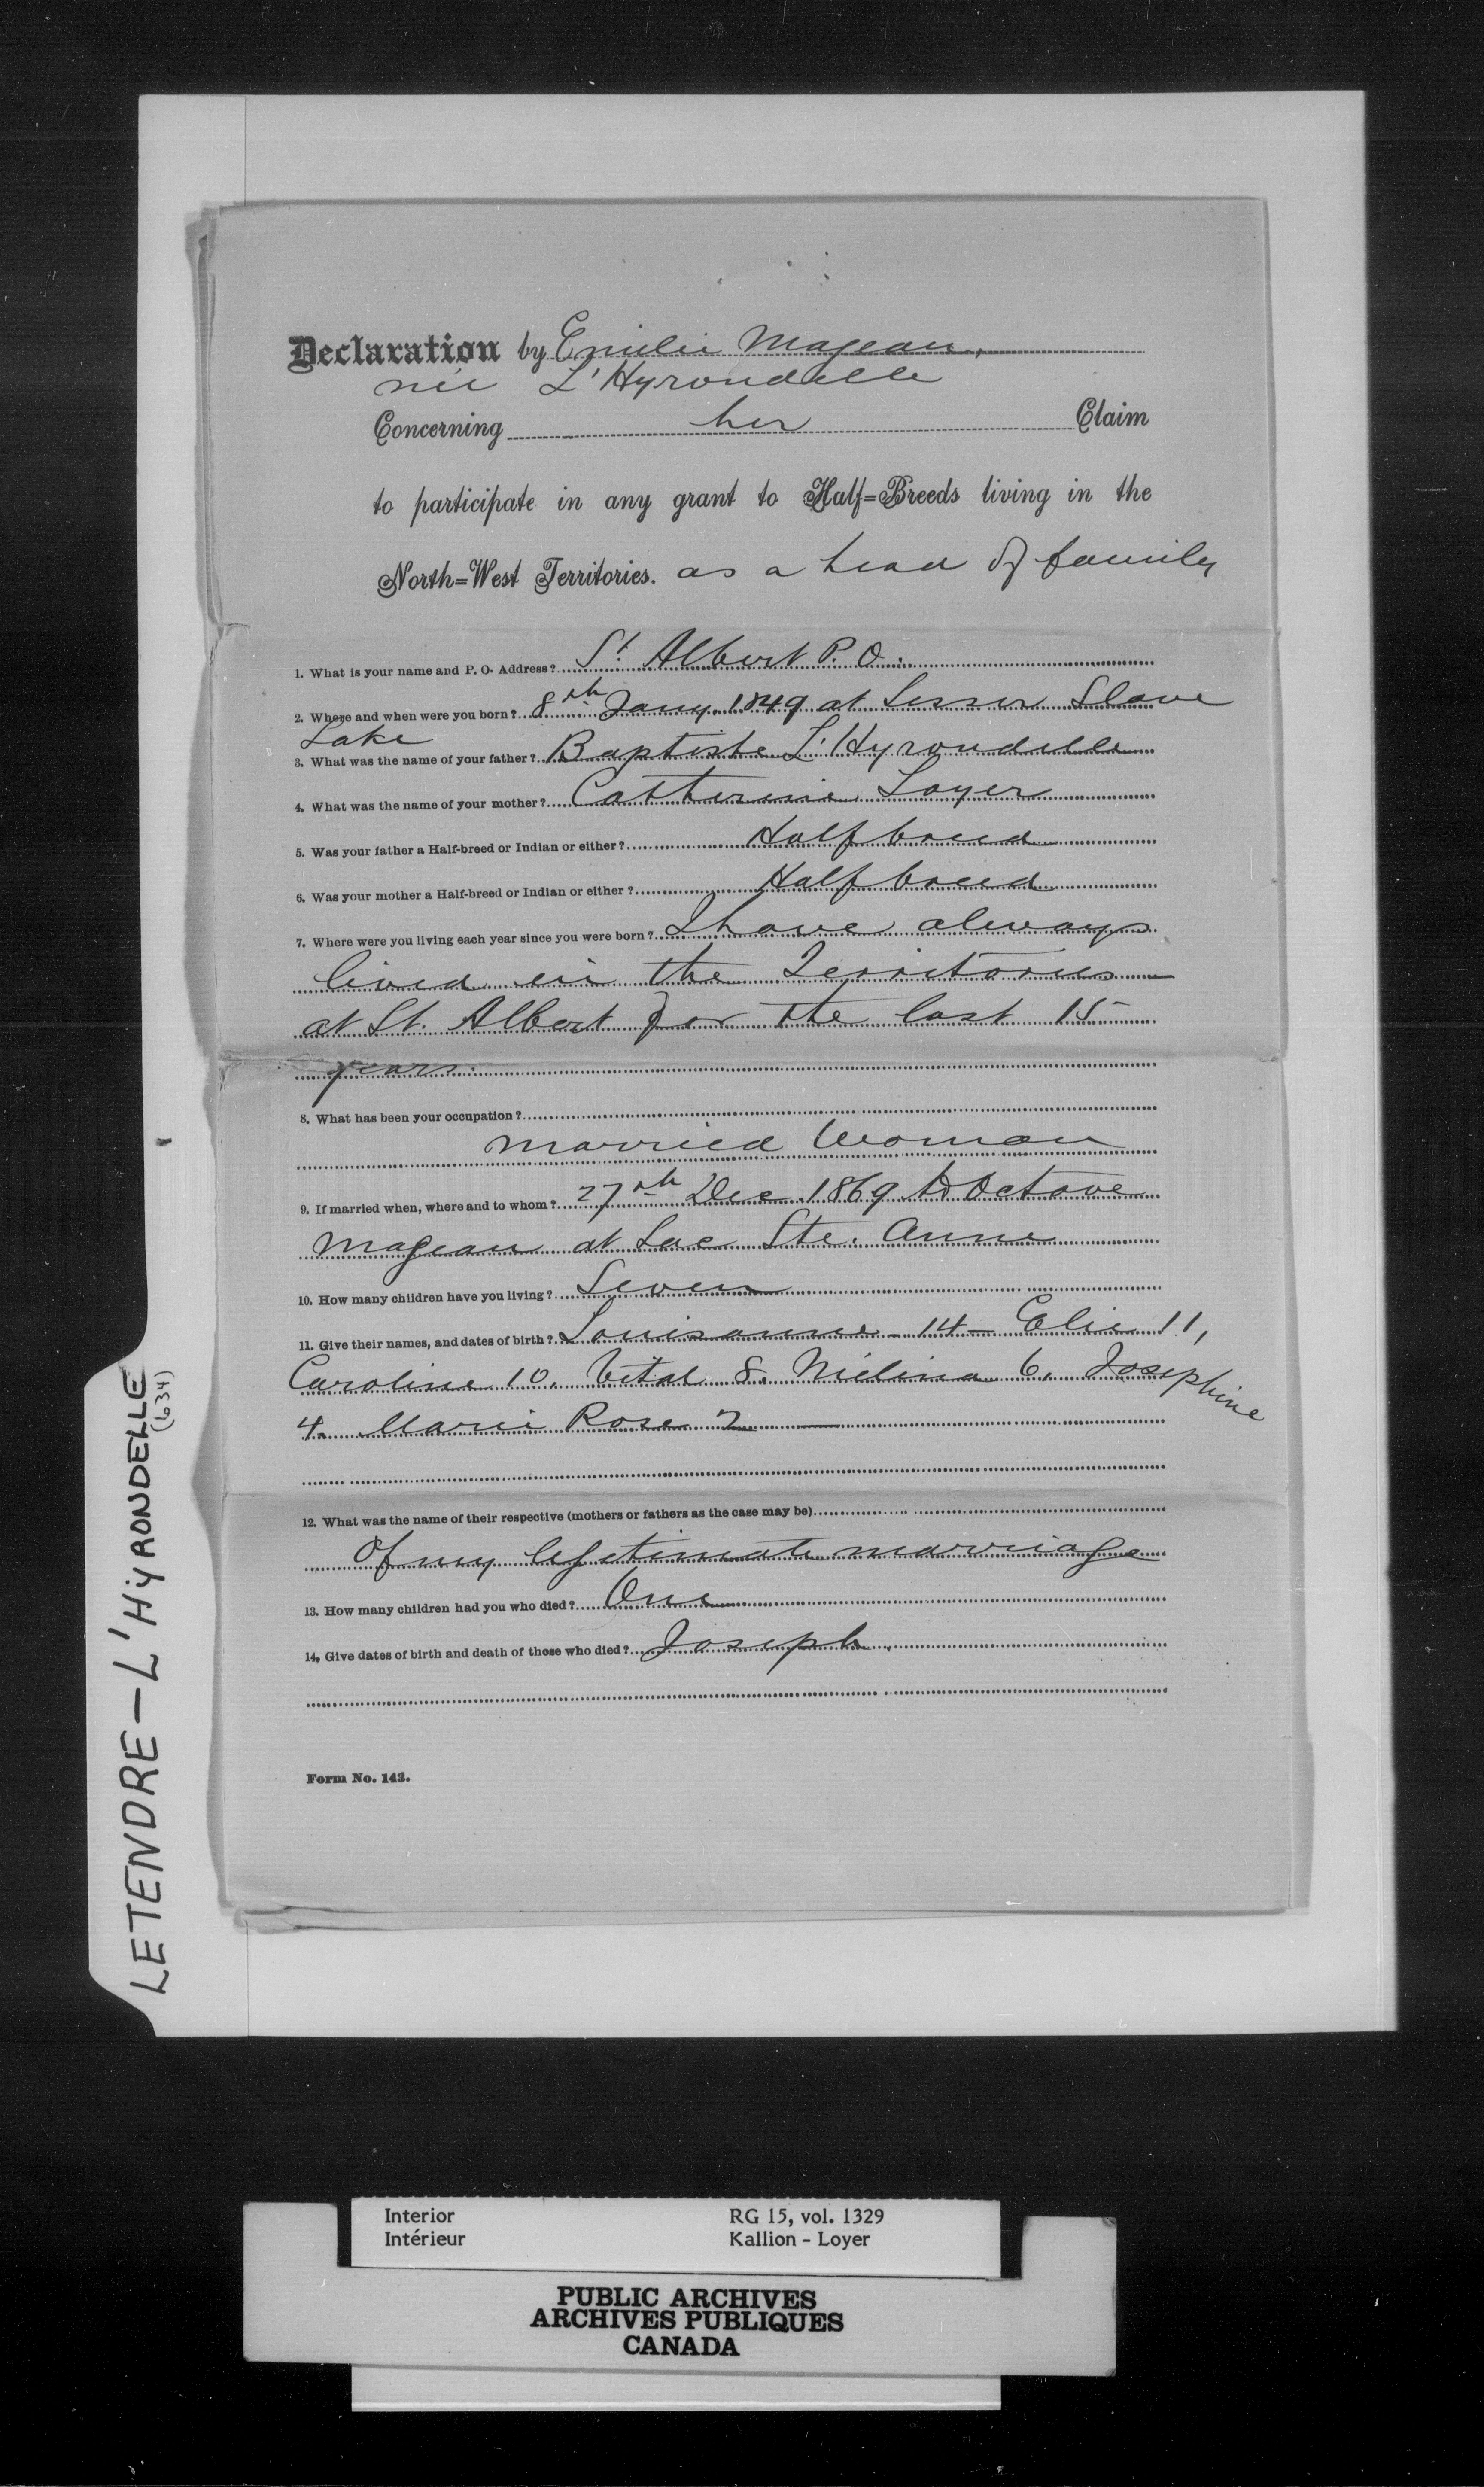 Declaration by Emilie Majeau,
née L'Hyrondelle
Concerning her Claim
to participate in any grant to Half=Breeds living in the
North=West Territories. as a head of family
1. What is your name and P. O. Address? St. Albert P.O.
2. Where and when were you born? 8th Jany. 1849 at Lesser Slave
Lake
3. What was the name of your father? Baptiste L'Hyrondelle
4. What was the name of your mother? Catherine Loyer
5. Was your father a Half-breed or Indian or either? Halfbreed
6. Was your mother a Half-breed or Indian or either? Halfbreed
7. Where were you living each year since you were born? I have always
lived in the Territories
at St. Albert for the last 15
years.
8. What has been your occupation?
married woman
9. If married when, where and to whom? 27th Dec. 1869 to Octave
Majeau at Lac Ste. Anne
10. How many children have you living? Seven
11. Give their names, and dates of birth? Louisanne - 14 - Elie 11,
Caroline 10. Vital 8. Mélina 6. Josephine
4. Marie Rose 2 —
12. What was the name of their respective (mothers or fathers as the case may be)
Of my legitimate marriage
13. How many children had you who died? One
14. Give dates of birth and death of those who died? Joseph.
Form No. 143.
LETENDRE – L'HYRONDELLE
(634)
Interior RG 15, vol. 1329
Intérieur Kallion – Loyer
PUBLIC ARCHIVES
ARCHIVES PUBLIQUES
CANADA